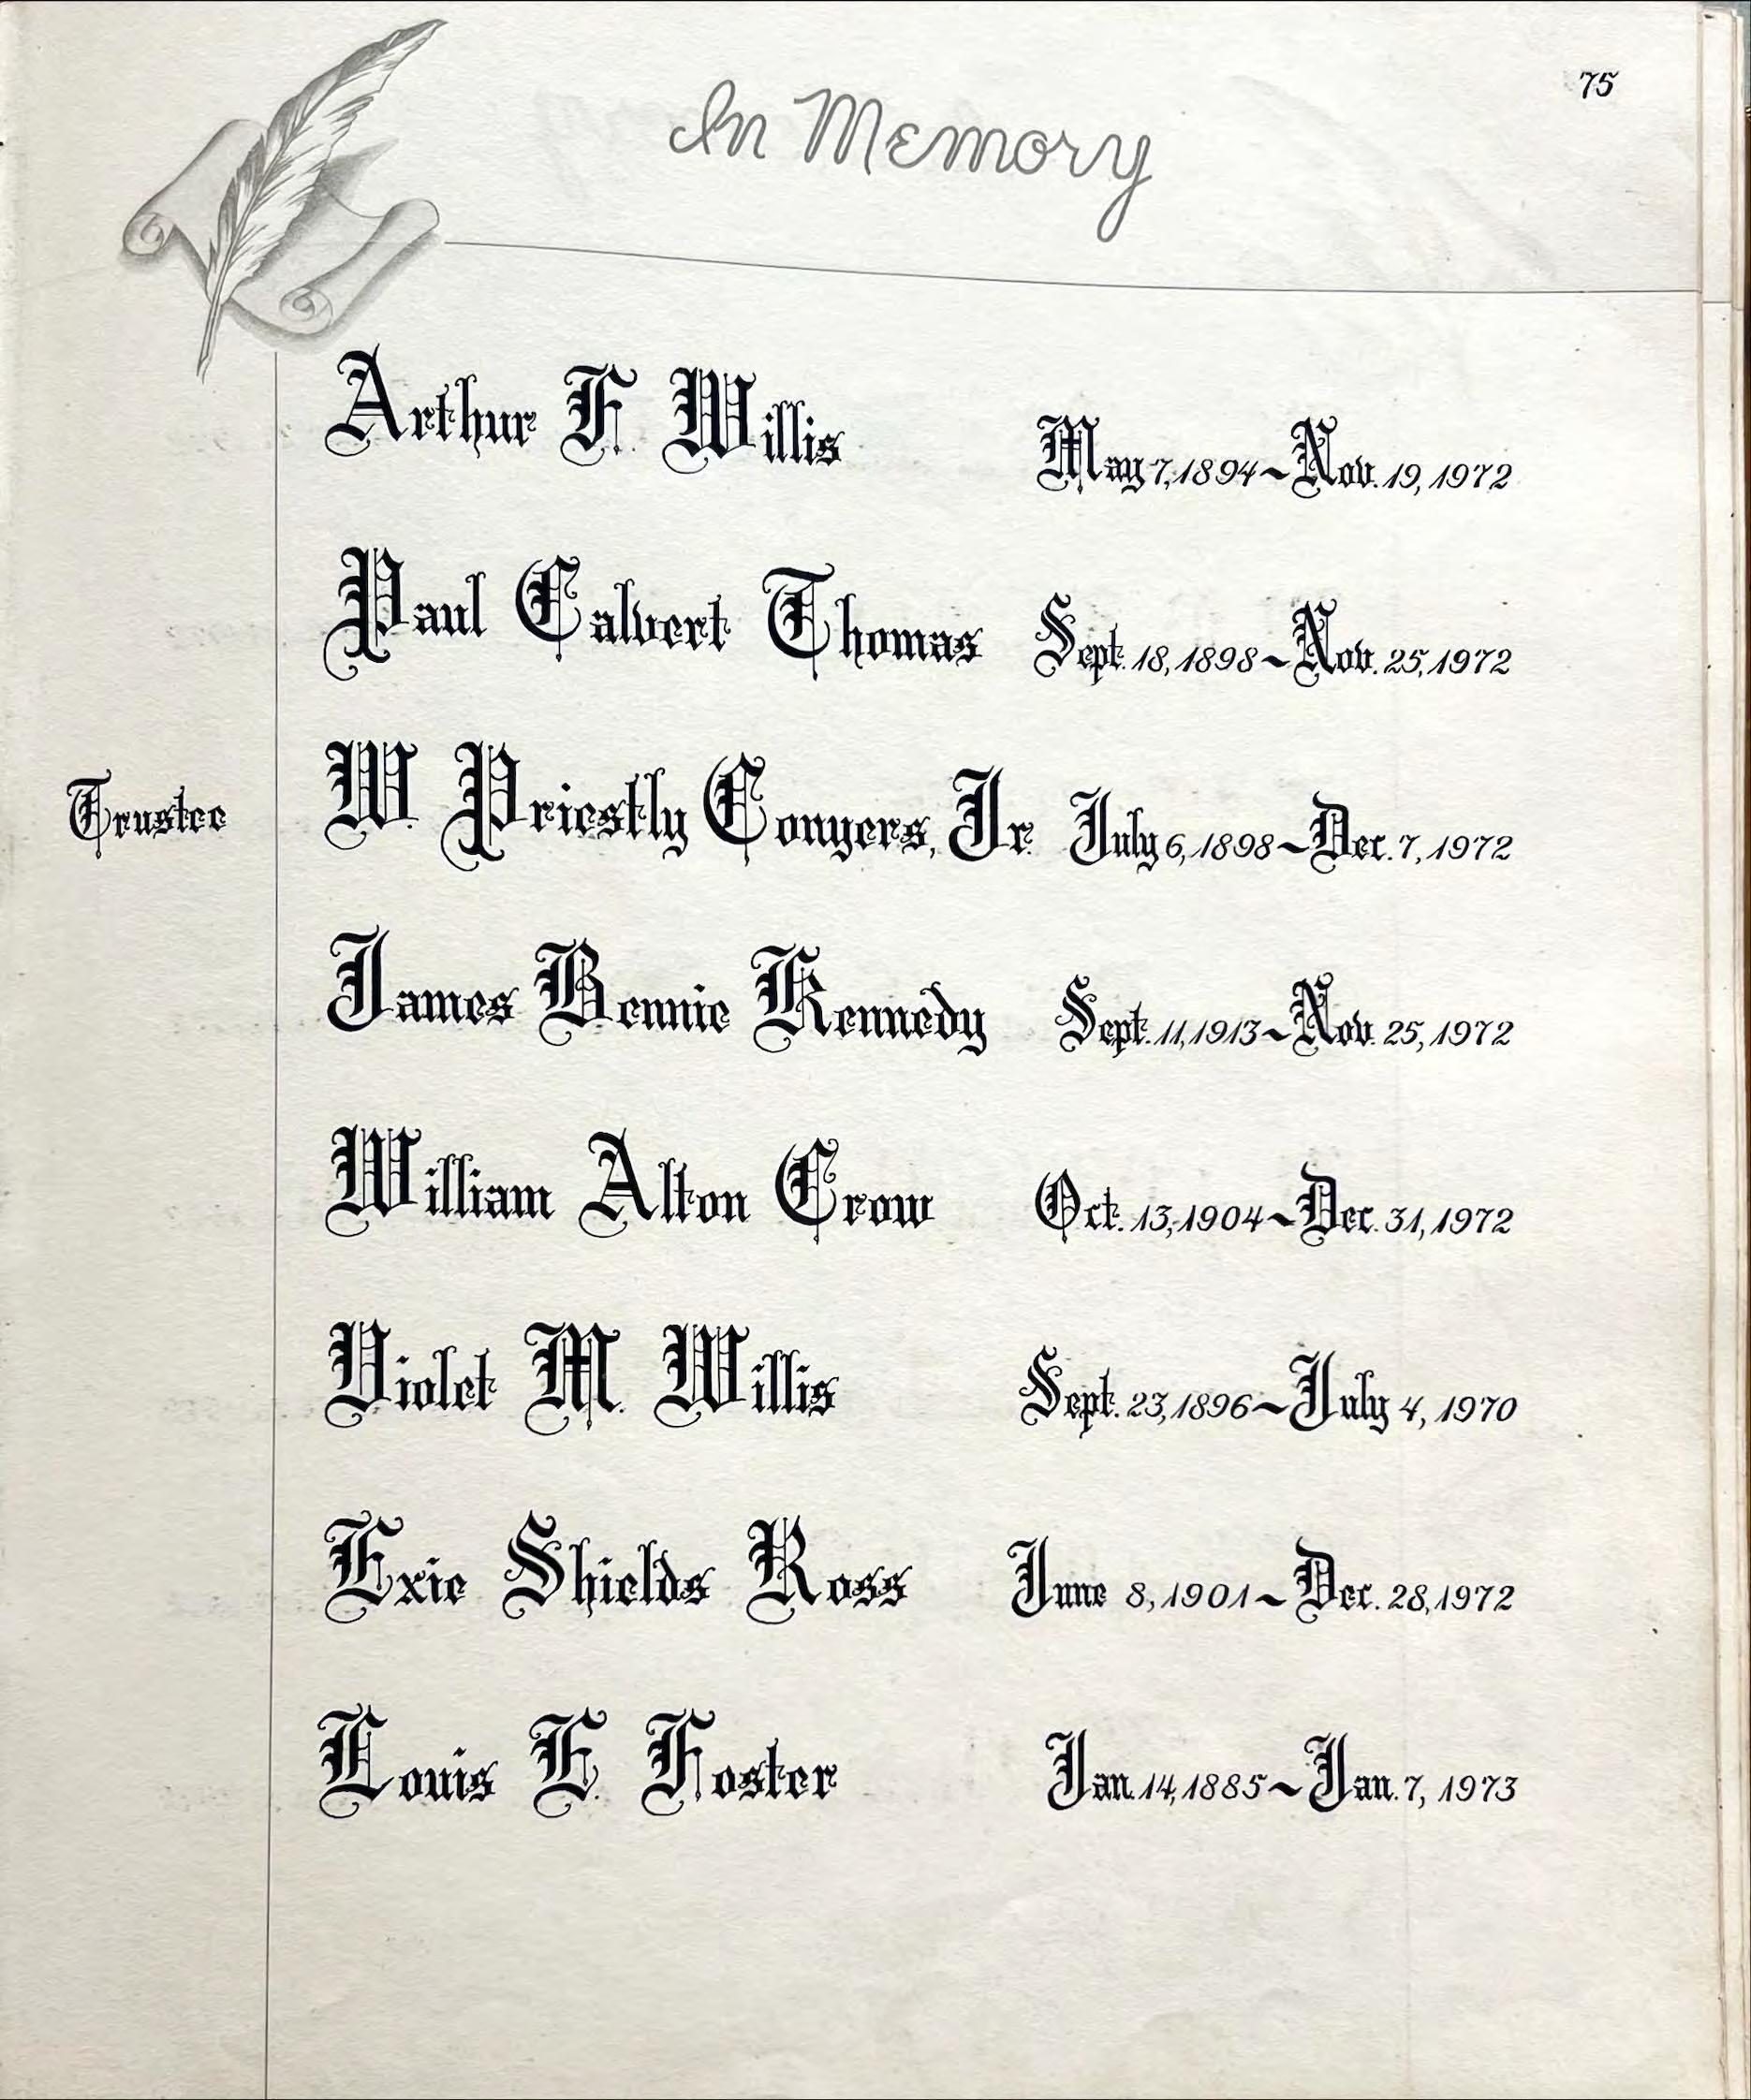 75
In Memory
Arthur F. Willis May 7, 1894 ~ Nov. 19, 1972
Paul Calvert Thomas Sept. 18, 1898 ~ Nov. 25, 1972
Trustee W. Priestly Conyers, Jr. July 6, 1898 ~ Dec. 7, 1972
James Bennie Kennedy Sept. 11, 1913 ~ Nov. 25, 1972
William Alton Crow Oct. 13, 1904 ~ Dec. 31, 1972
Violet M. Willis Sept. 23, 1896 ~ July 4, 1970
Exie Shields Ross June 8, 1901 ~ Dec. 28, 1972
Louis E. Foster Jan. 14, 1885 ~ Jan. 7, 1973